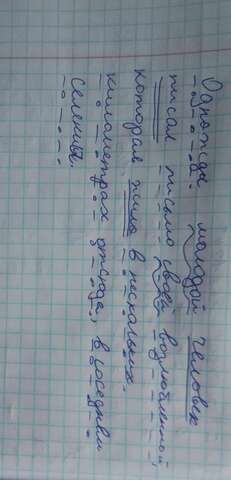 Однажды молодой человек
писал письмо своей возлюбленной,
которая жила в нескольких
километрах отсюда, в соседнем
селении.